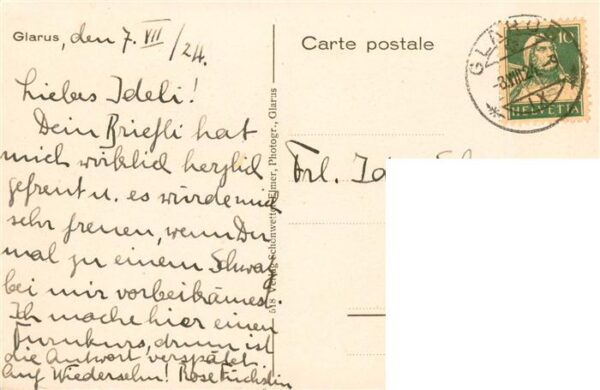 Glarus, den 7. VII / 24.
Carte postale
GLARUS
-8.VIII.24
10
HELVETIA
Liebes Ideli!
Dein Briefli hat
mich wirklich herzlich
gefreut u. es würde mich
sehr freuen, wenn Du
mal zu einem Schwatz
bei mir vorbeikämest.
Ich mache hier einen
Turnkurs, drum ist
die Antwort verspätet.
Auf Wiedersehn! Rose Füchslin
518 Verlag Schönwetter-Elmer, Photogr., Glarus
Frl. Ida